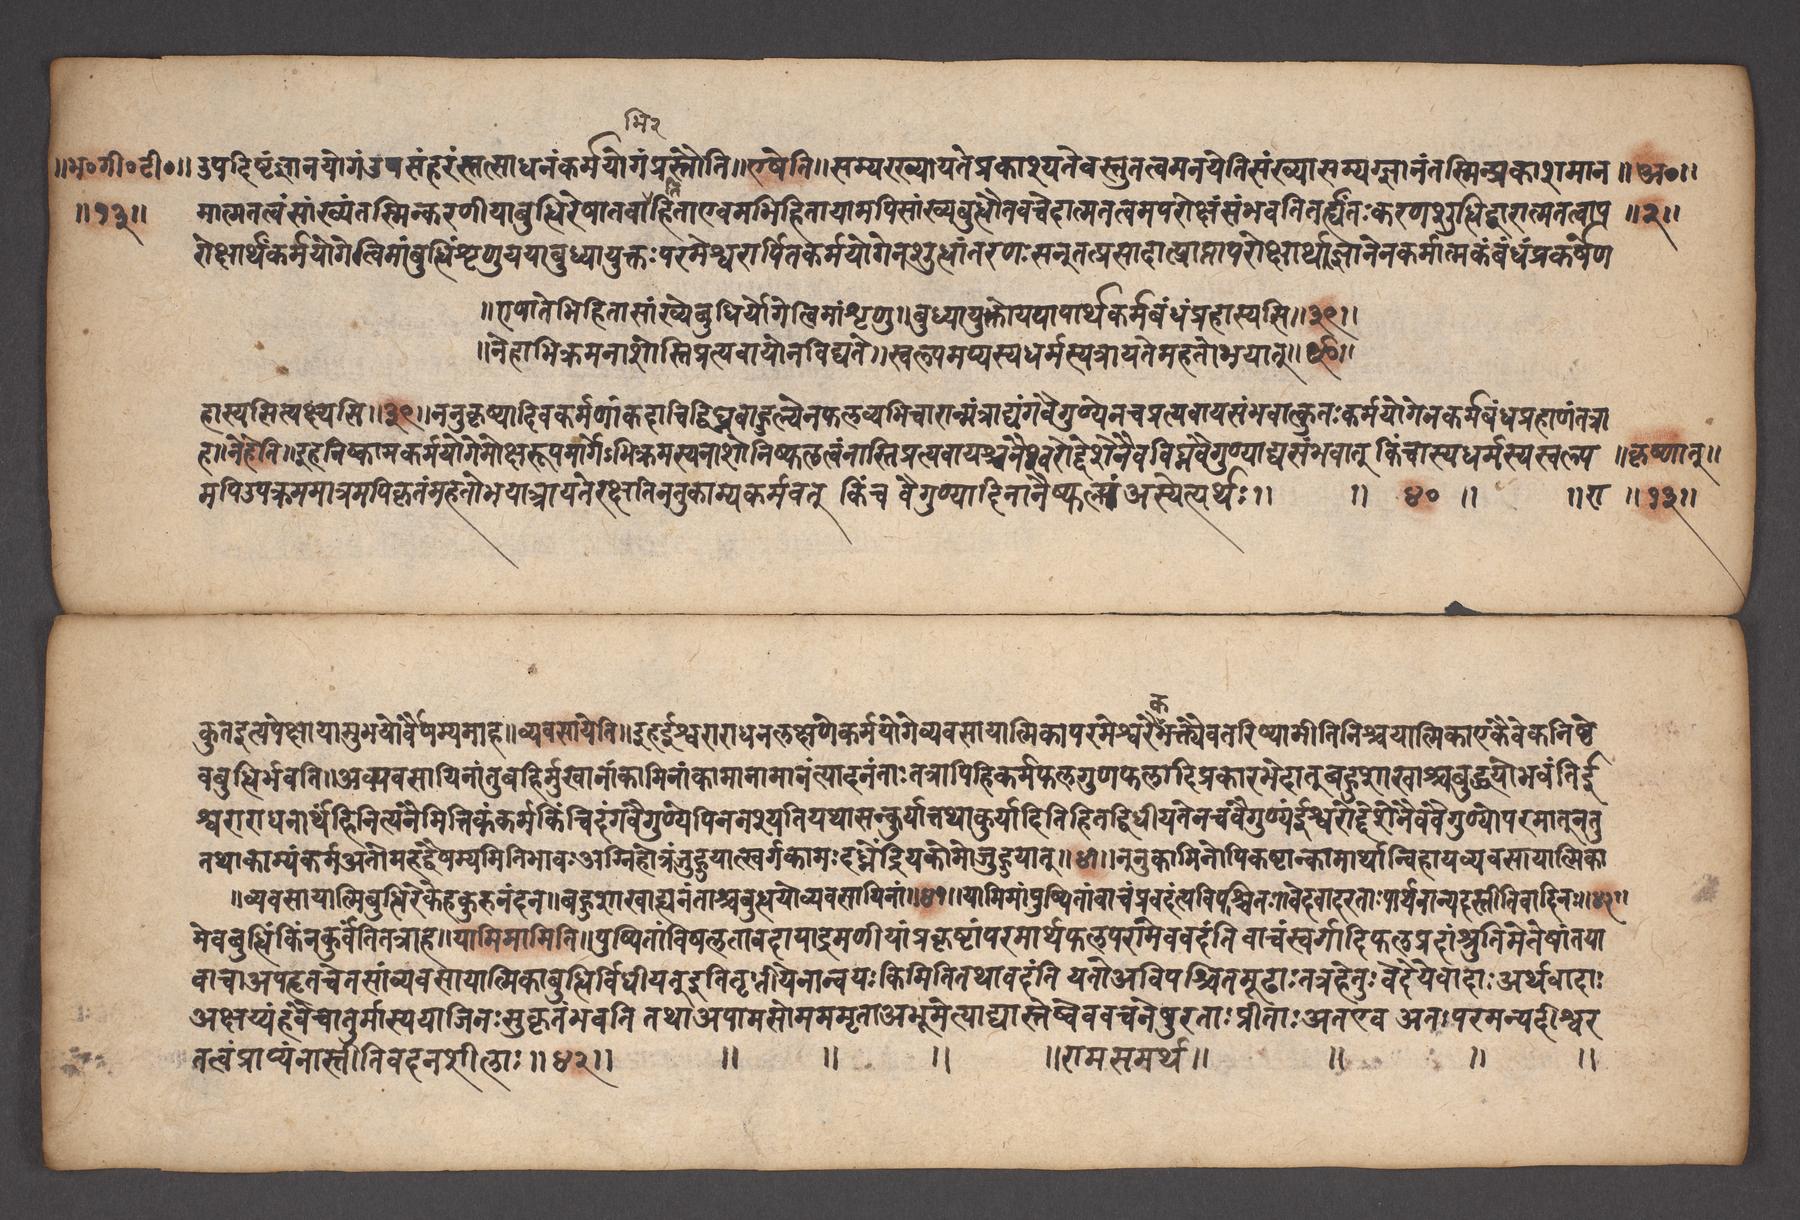 भि२
॥भ०गी०टी०॥ उपदिष्टंज्ञानयोगंउपसंहरंस्तत्साधनंकर्मयोगंप्रस्तौति॥एषेति॥सम्यख्यायतेप्रकाश्यतेवस्तुतत्वमनयेतिसंख्यासम्यग्ज्ञानंतस्मिन्प्रकाशमान ॥अ०॥
॥१३॥ मात्मतत्वंसांख्यंतस्मिन्करणीयाबुद्धिरेषातवाहिताएवमभिहितायामपिसांख्यबुद्धौतवचेदात्मतत्वमपरोक्षंसंभवतितर्ह्यंतःकरणशुद्धिद्वारात्मतत्वाप ॥२॥
रोक्षार्थंकर्मयोगेत्विमांबुद्धिंशृणुययाबुध्यायुक्तःपरमेश्वरार्पितकर्मयोगेनशुद्धांतरणःसन्तत्प्रसादात्प्राप्तापरोक्षार्थाज्ञानेनकर्मात्मकंबंधंप्रकर्षेण
॥एषातेभिहितासांख्येबुधिर्योगेत्विमांशृणु॥बुध्यायुक्तोययापार्थकर्मबंधंप्रहास्यसि॥३९॥
॥नेहाभिक्रमनाशोस्तिप्रत्यवायोनविद्यते॥स्वल्पमप्यस्यधर्मस्यत्रायतेमहतोभयात्॥४०॥
हास्यसित्यक्ष्यसि॥३९॥ननुकृष्यादिवकर्मणांकदाचिद्विघ्नबाहुल्येनफलव्यभिचारान्मंत्राद्यंगवैगुण्येनचप्रत्यवायसंभवात्कुतःकर्मयोगेनकर्मबंधप्रहाणंतत्रा
ह॥नेहेति॥इहनिष्कामकर्मयोगेमोक्षरूपमार्गेऽभिक्रमस्यनाशोनिष्फलत्वंनास्तिप्रत्यवायश्चनैश्वरोद्देशेनैवविघ्नवैगुण्याद्यसंभवात् किंचास्यधर्मस्यस्वल्प ॥कृष्णात्॥
मपिउपक्रममात्रमपिकृतंमहतोभयात्त्रायतेरक्षतिननुकाम्यकर्मवत् किंच वैगुण्यादिनानैष्फल्यं अस्येत्यर्थः॥ ॥ ४० ॥ ॥रा ॥१३॥
क
कुतइत्यपेक्षायामुभयोर्वैषम्यमाह॥व्यवसायेति॥इहईश्वराराधनलक्षणेकर्मयोगेव्यवसायात्मिकापरमेश्वरैभक्त्यैवतरिष्यामीतिनिश्चयात्मिकाएकैवेकनिष्ठै
वबुद्धिर्भवति॥अव्यवसायिनांतुबहिर्मुखानांकामिनांकामानामानंत्यादनंताःतत्रापिहिकर्मफलगुणफलादिप्रकारभेदात् बहुशाखाश्चबुद्धयोभवंतिई
श्वराराधनार्थंहिनित्यंनैमित्तिकंकर्मकिंचिदंगवैगुण्येपिननश्यतियथासन्कुर्यात्तथाकुर्यादितिहितद्विधीयतेनचवैगुण्यंईश्वरोद्देशेनैववैगुण्योपरमात्नतु
तथाकाम्यंकर्मअतोमहद्वैषम्यमितिभावःअग्निहोत्रंजुहुयात्स्वर्गकामःदध्नेंद्रियकामोजुहुयात्॥४१॥ननुकामिनोपिकष्टान्कामार्थान्विहायव्यवसायात्मिका
॥व्यवसायात्मिबुद्धिरेकेहकुरुनंदन॥बहुशाखाह्यनंताश्चबुद्धयोव्यवसायिनां॥४१॥यामिमांपुष्पितांवाचंप्रवदंत्यविपश्चितः॥वेदवादरताःपार्थनान्यदस्तीतिवादिनः॥४२॥
मेवबुद्धिंकिंनकुर्वंतितत्राह॥यामिमामिति॥पुष्पितांविषलतावदापाद्रमणीयांप्रकृष्टांपरमार्थफलपरामेववदंति वाचंस्वर्गादिफलप्रदांश्रुतिमेतेषांतया
वाचाअपहृतचेतसांव्यवसायात्मिकाबुद्धिर्विधीयत्इतितृतीयेनान्वयःकिमितितथावदंति यतोअविपश्चितमूढाःतत्रहेतुःवेदेयेवादाःअर्थवादाः
अक्षय्यंहवैचातुर्मास्ययाजिनःसुकृतंभवति तथाअपामसोमममृताअभूमेत्याद्यास्तेष्वेववचनेषुरताःप्रीताःअतएव अतःपरमन्यदीश्वर
तत्वंप्राप्यंनास्तीतिवदनशीलाः॥४२॥ ॥ ॥ ॥ ॥रामसमर्थ॥ ॥ ॥ ॥